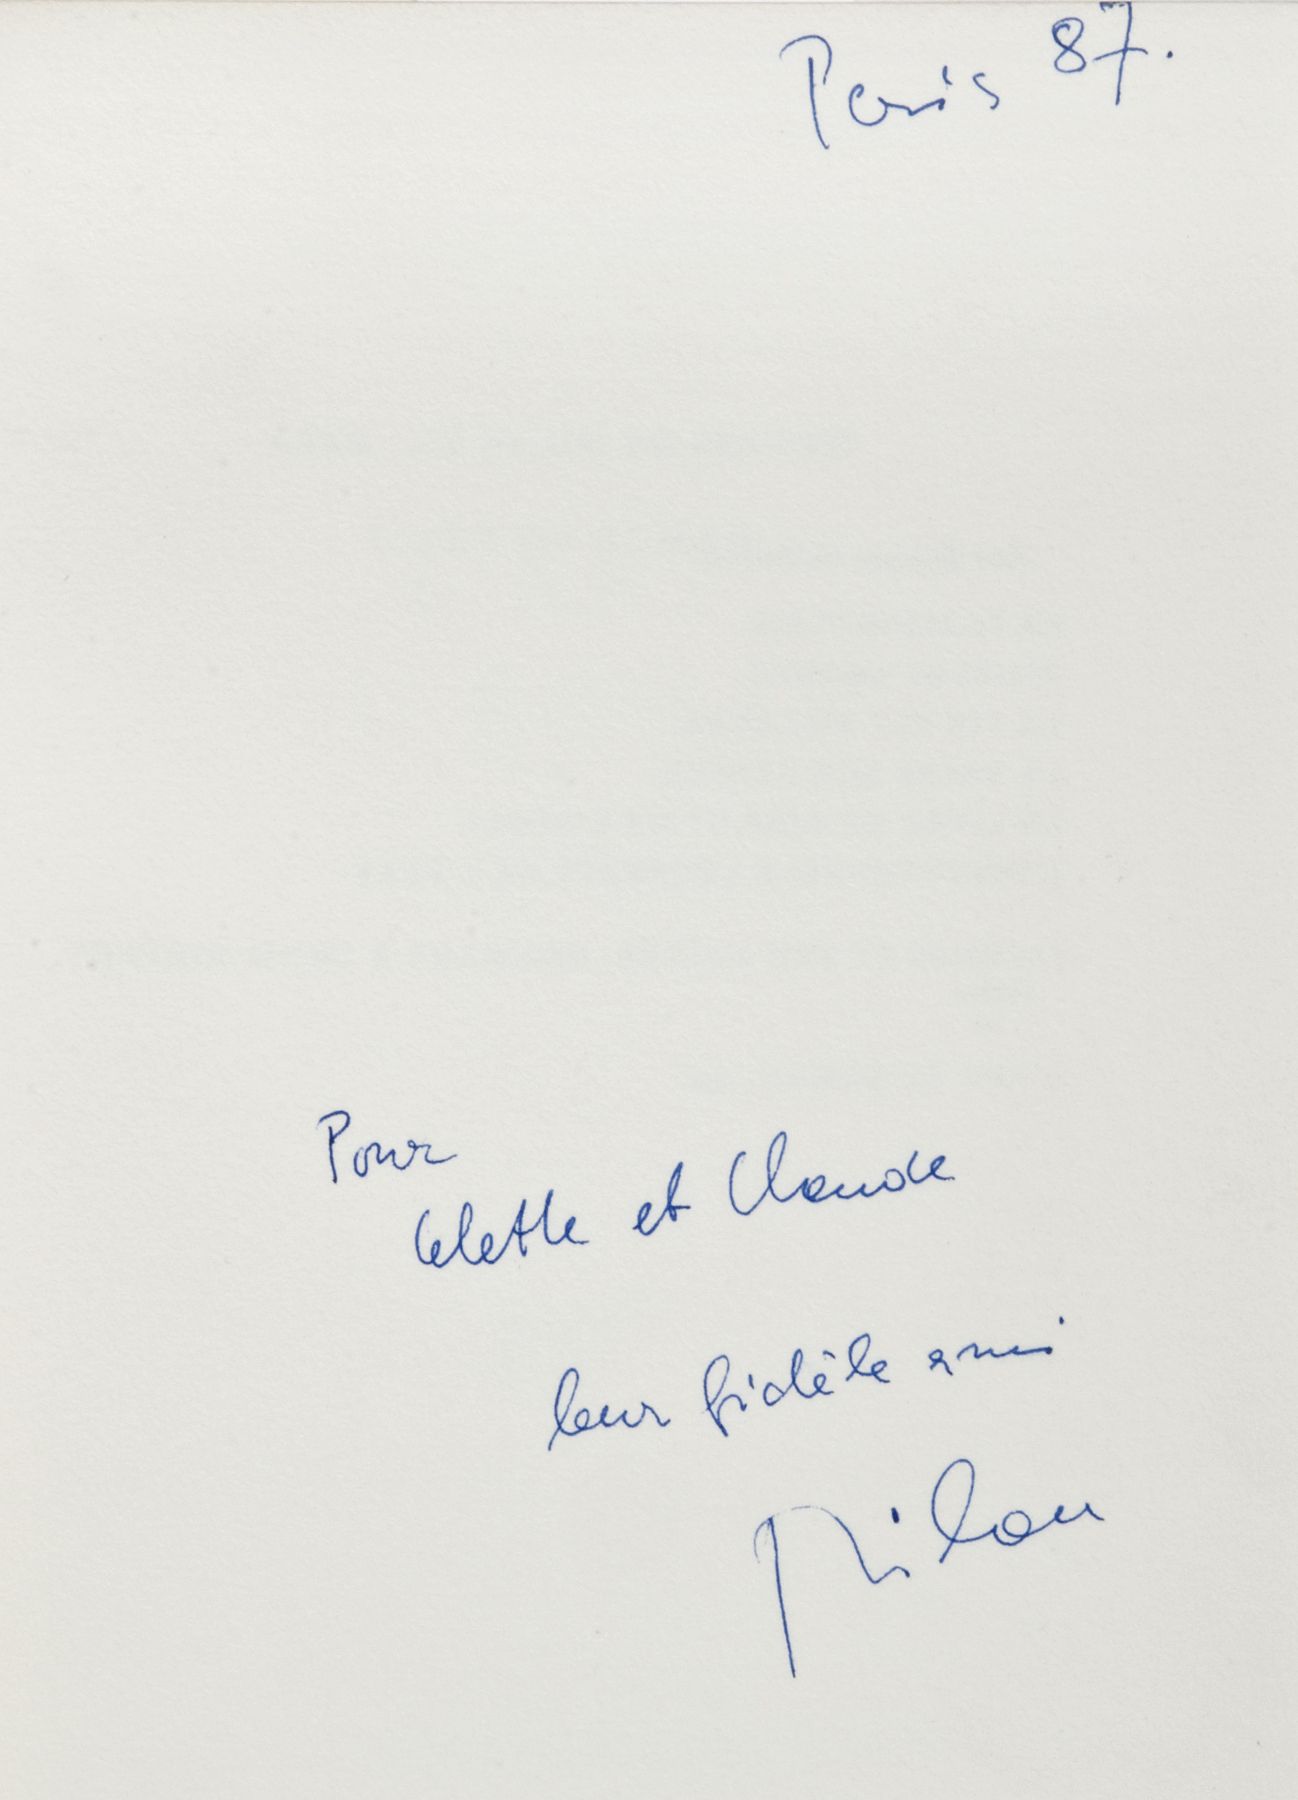 Paris 87.
Pour
Colette et Claude
leur fidèle ami
Milan